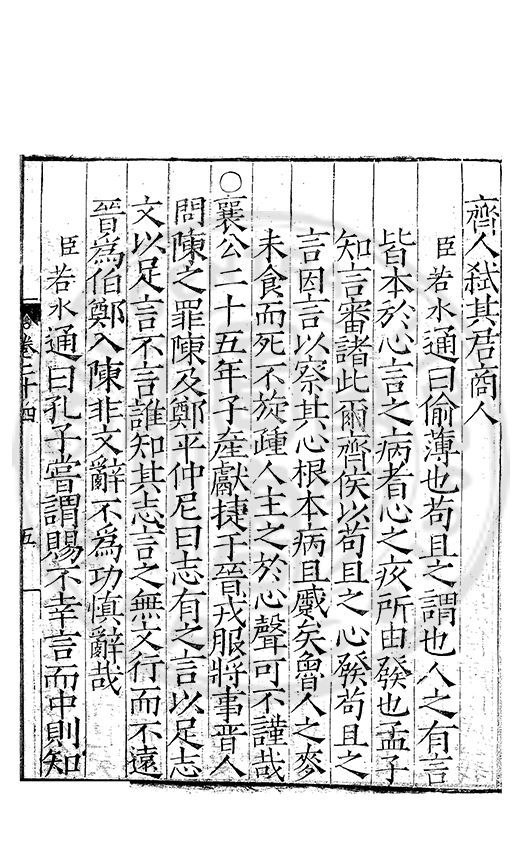 齊人弑其君商人
臣若水通曰偷薄也苟且之謂也人之有言
皆本於心言之病者心之疚所由發也孟子
知言審諸此爾齊侯以苟且之心發苟且之
言因言以察其心根本病且蹷矣魯人之麥
未食而死不旋踵人主之於心聲可不謹哉
○襄公二十五年子產獻捷于晉戎服將事晉人
問陳之罪陳及鄭平仲尼曰志有之言以足志
文以足言不言誰知其志言之無文行而不遠
晉為伯鄭入陳非文辭不為功慎辭哉
臣若水通曰孔子嘗謂賜不幸言而中則知
卷二十四
五